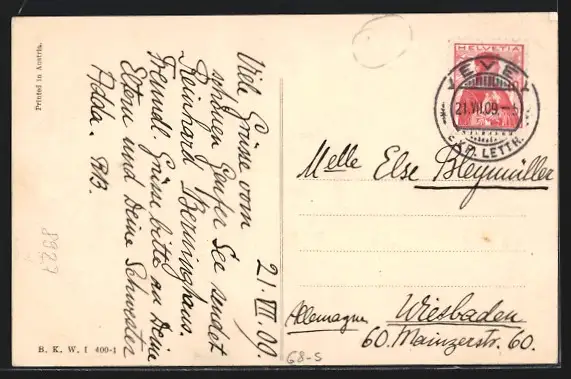 Printed in Austria.
21. VII. 09.
Viele Grüsse vom
schönen Genfer See sendet
Reinhard Berninghaus.
Freundl. Grüsse bitte an Deine
Eltern und Deine Schwester
Adda. RB.
8927
B. K. W. I 400-1
68-S
HELVETIA
VEVEY
21.VII.09.
EXP. LETTR.
Melle Else Bleymüller
Allemagne Wiesbaden
60. Mainzerstr. 60.